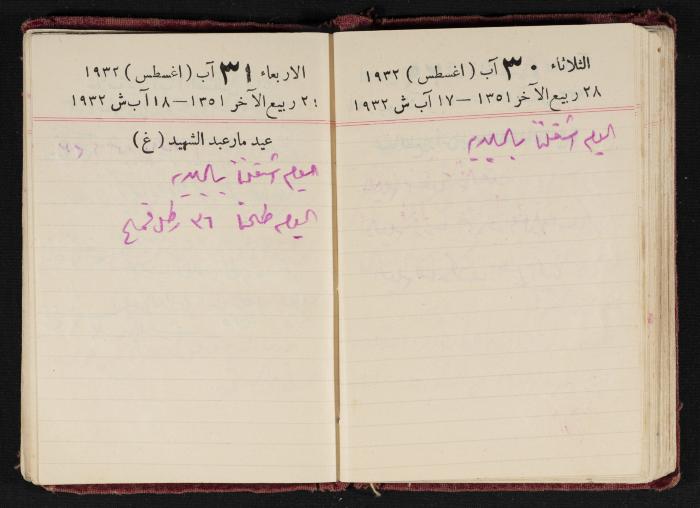 الثلاثاء ٣٠ آب ( اغسطس ) ١٩٣٢
٢٨ ربيع الآخر ١٣٥١ — ١٧ آب ش ١٩٣٢
اليوم اشتغلنا بالبلديه
الاربعاء ٣١ آب ( اغسطس ) ١٩٣٢
ربيع الآخر ١٣٥١ — ١٨ آب ش ١٩٣٢
عيد مار عبد الشهيد ( غ )
اليوم اشتغلنا بالبلديه
اليوم طحنا ٣٦ رطل قمح